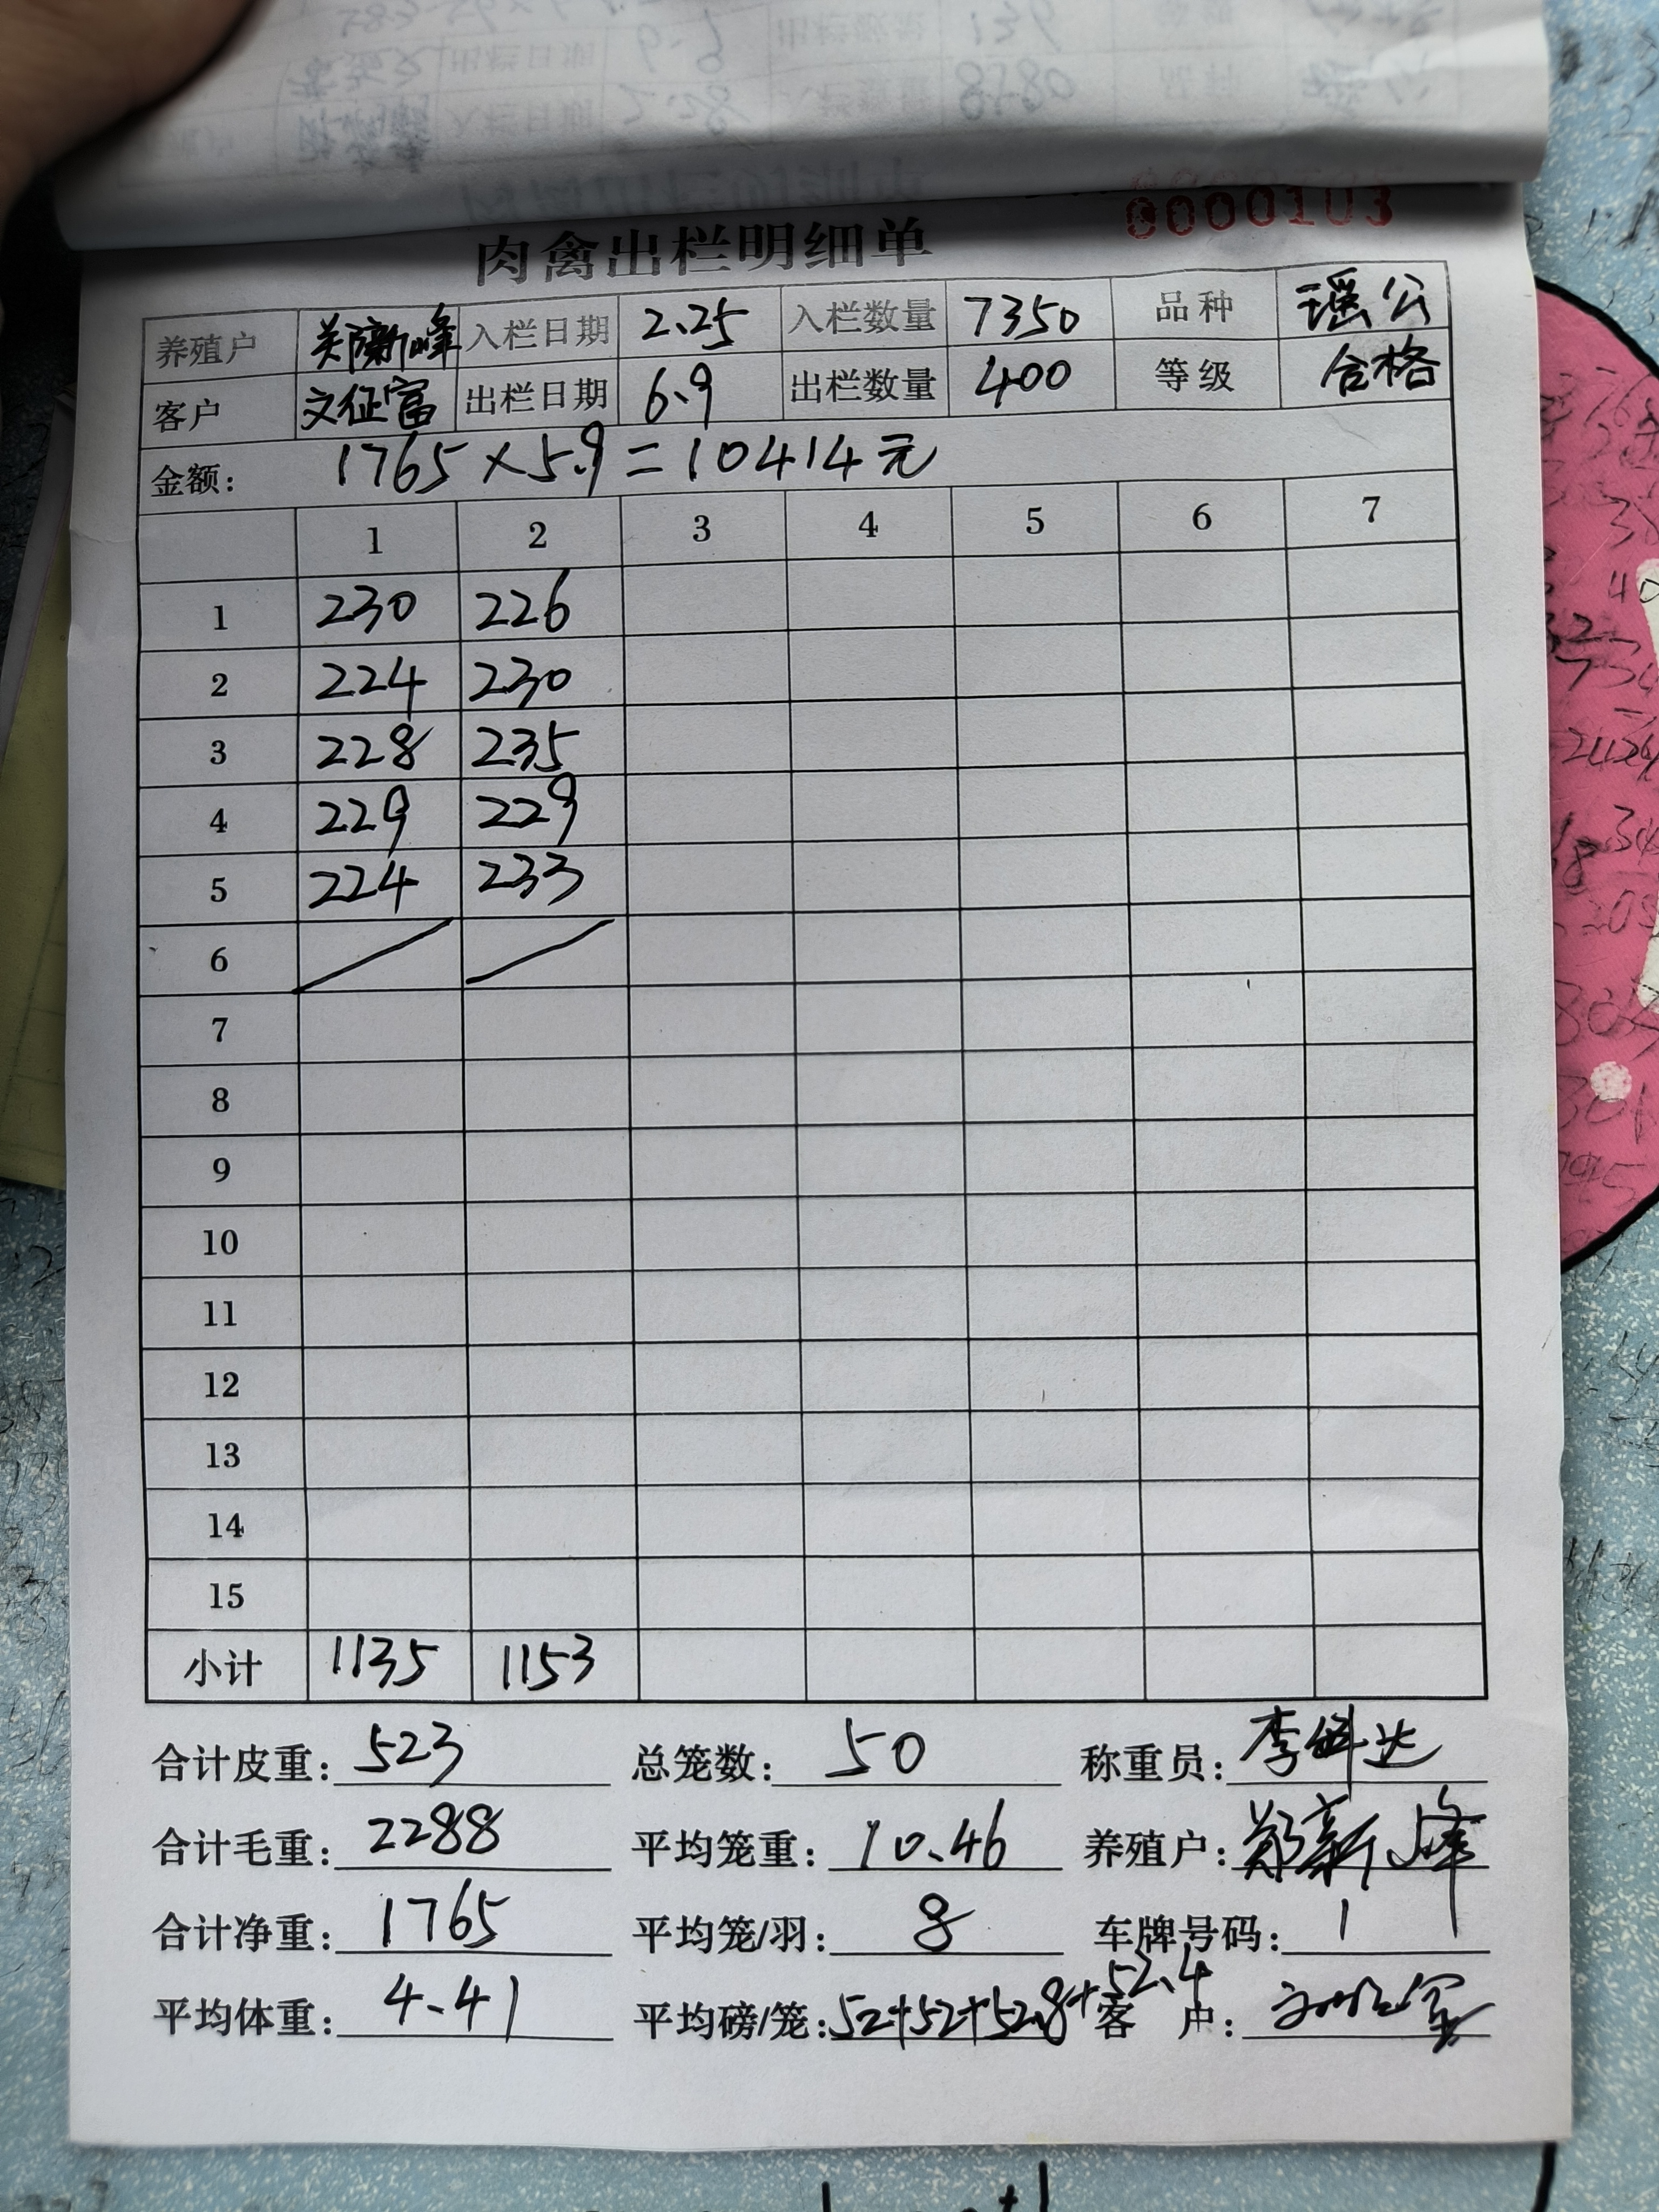 肉禽出栏明细单 0000103
养殖户 关郑新峰 入栏日期 2.25 入栏数量 7350 品种 瑶公
客户 文征富 出栏日期 6.9 出栏数量 400 等级 合格
金额: 1765×5.9=10414元
1 2 3 4 5 6 7
1 230 226
2 224 230
3 228 235
4 229 229
5 224 233
6
7
8
9
10
11
12
13
14
15
小计 1135 1153
合计皮重: 523 总笼数: 50 称重员: 李
合计毛重: 2288 平均笼重: 10.46 养殖户: 郑新峰
合计净重: 1765 平均笼/羽: 8 车牌号码: 1
平均体重: 4.41 平均磅/笼: 52+52+52.8+52.4 客户: